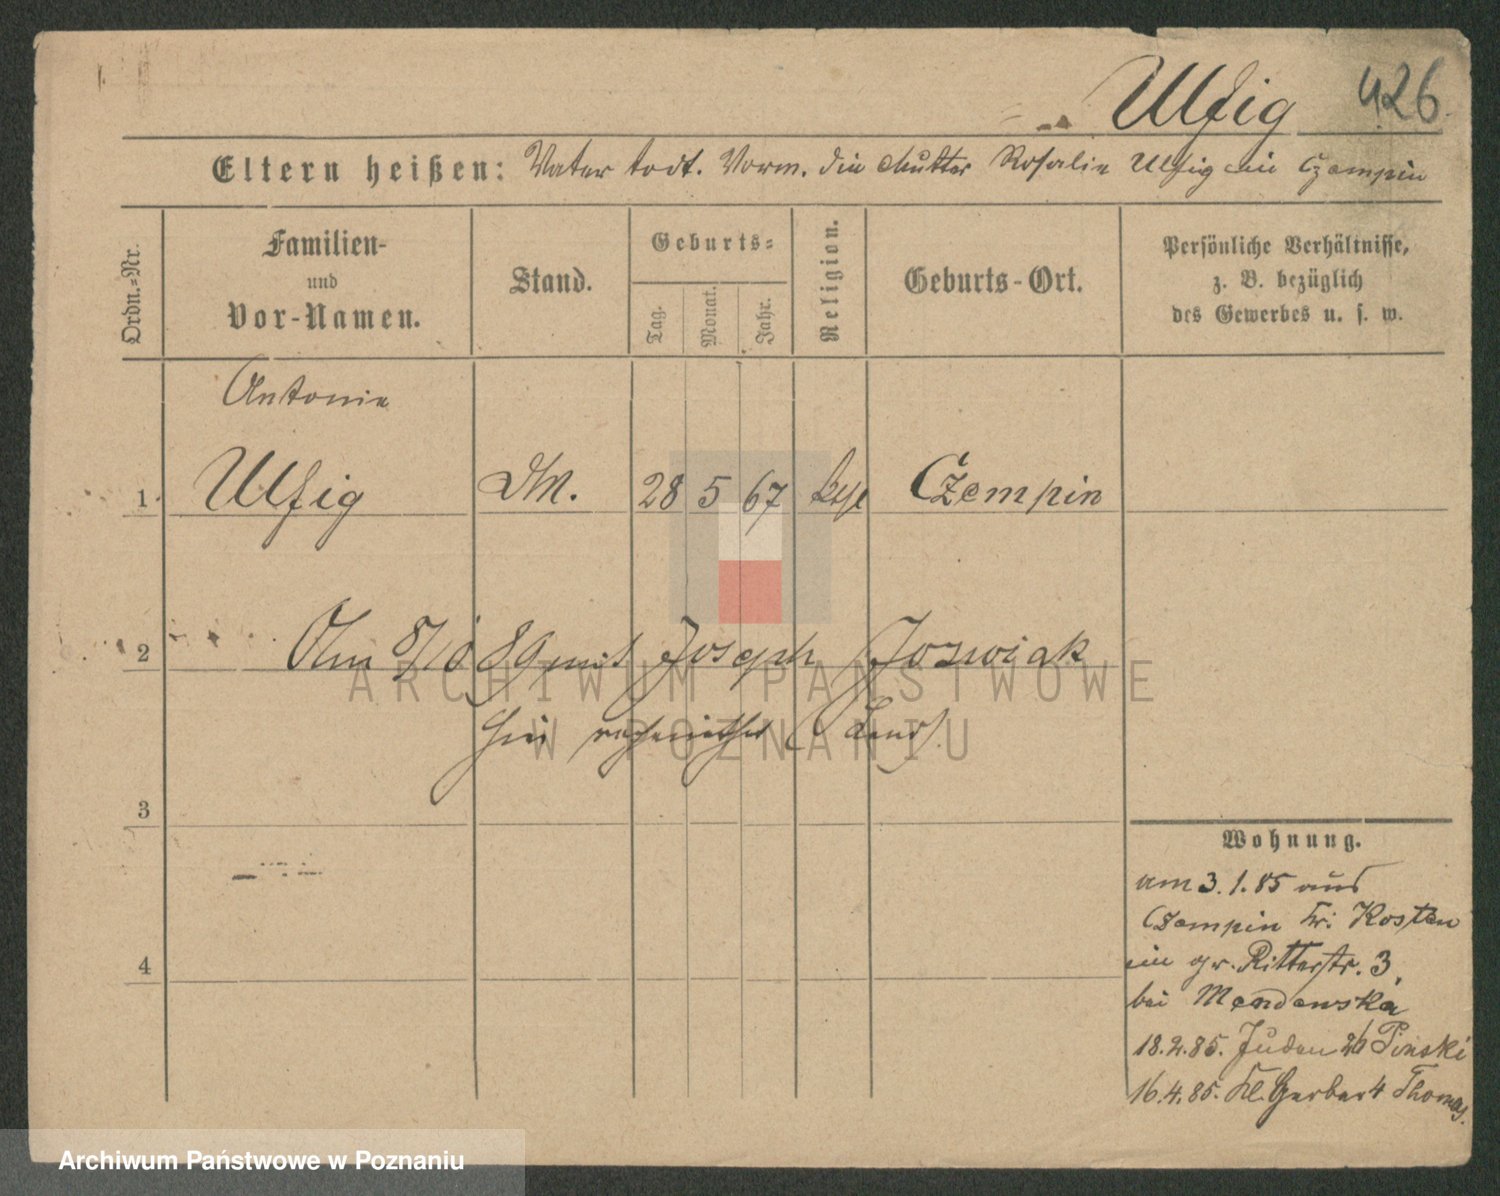 Ulfig 426
Eltern heißen: Vater todt. Vorm. die Mutter Rosalie Ulfig in Czempin
Ordn.-Nr.
Familien-
und
Vor-Namen.
Stand.
Geburts-
Tag.
Monat.
Jahr.
Religion.
Geburts-Ort.
Persönliche Verhältnisse,
z. B. bezüglich
des Gewerbes u. s. w.
Antonie
1. Ulfig DM. 28 5 67 Czempin
2 Am 8/10 89 mit Joseph Jozwiak
hier
3
4
Wohnung.
am 3.1.85 aus
Czempin Kr. Kosten
in gr. Ritterstr. 3,
bei Mendewska
18.2.85. Juden 26 Pinski
16.4.85. Kl. Gerber 4 Thomas.
ARCHIWUM PAŃSTWOWE
W POZNANIU
Archiwum Państwowe w Poznaniu